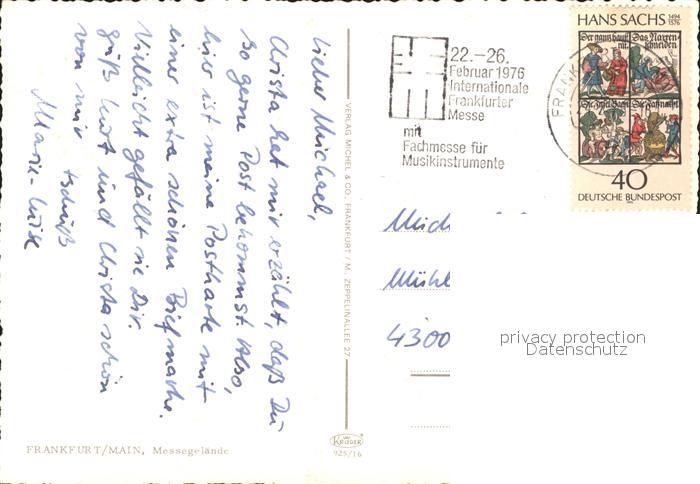 Lieber Michael,
Christa hat mir erzählt, daß Du
so gerne Post bekommst. Also,
hier ist meine Postkarte mit
einer extra schönen Briefmarke.
Vielleicht gefällt sie Dir.
Grüß Kurt und Christa schön
von mir tschüß
Marie-Luise
FRANKFURT/MAIN, Messegelände
VERLAG MICHEL & CO. FRANKFURT / M. ZEPPELINALLEE 27
KRÜGER
925/16
22.–26.
Februar 1976
Internationale
Frankfurter
Messe
mit
Fachmesse für
Musikinstrumente
FRANK
HANS SACHS 1494 1576
Der gantz hauß rat. Das Narren schneiden
40
DEUTSCHE BUNDESPOST
Mich
Mühl
4300
privacy protection
Datenschutz